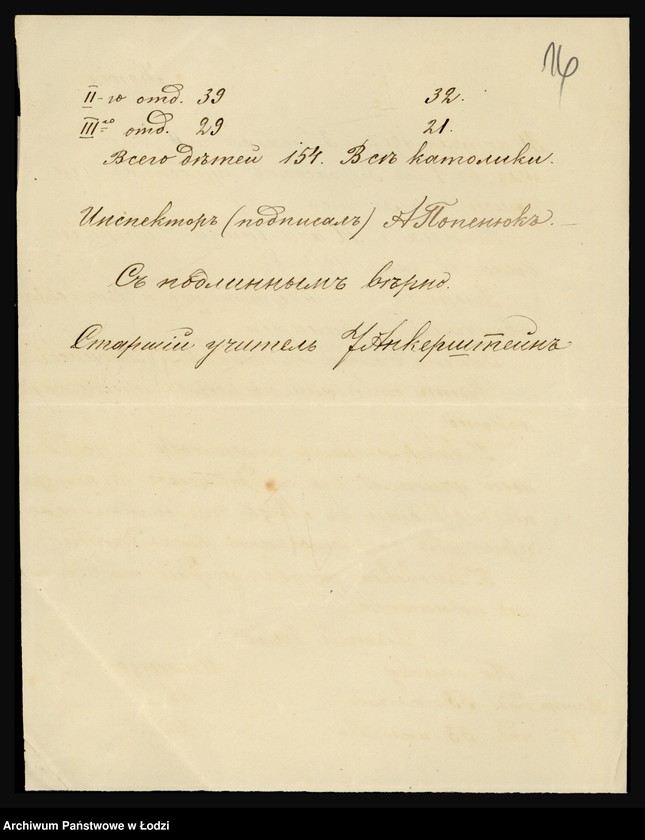 16
II-го отд. 39 32.
III-го отд. 29 21.
Всего дѣтей 154. Всѣ католики.
Инспекторъ (подписалъ) А Попенюкъ.
Съ подлиннымъ вѣрно.
Старшій учитель Анкерштейнъ
Archiwum Państwowe w Łodzi